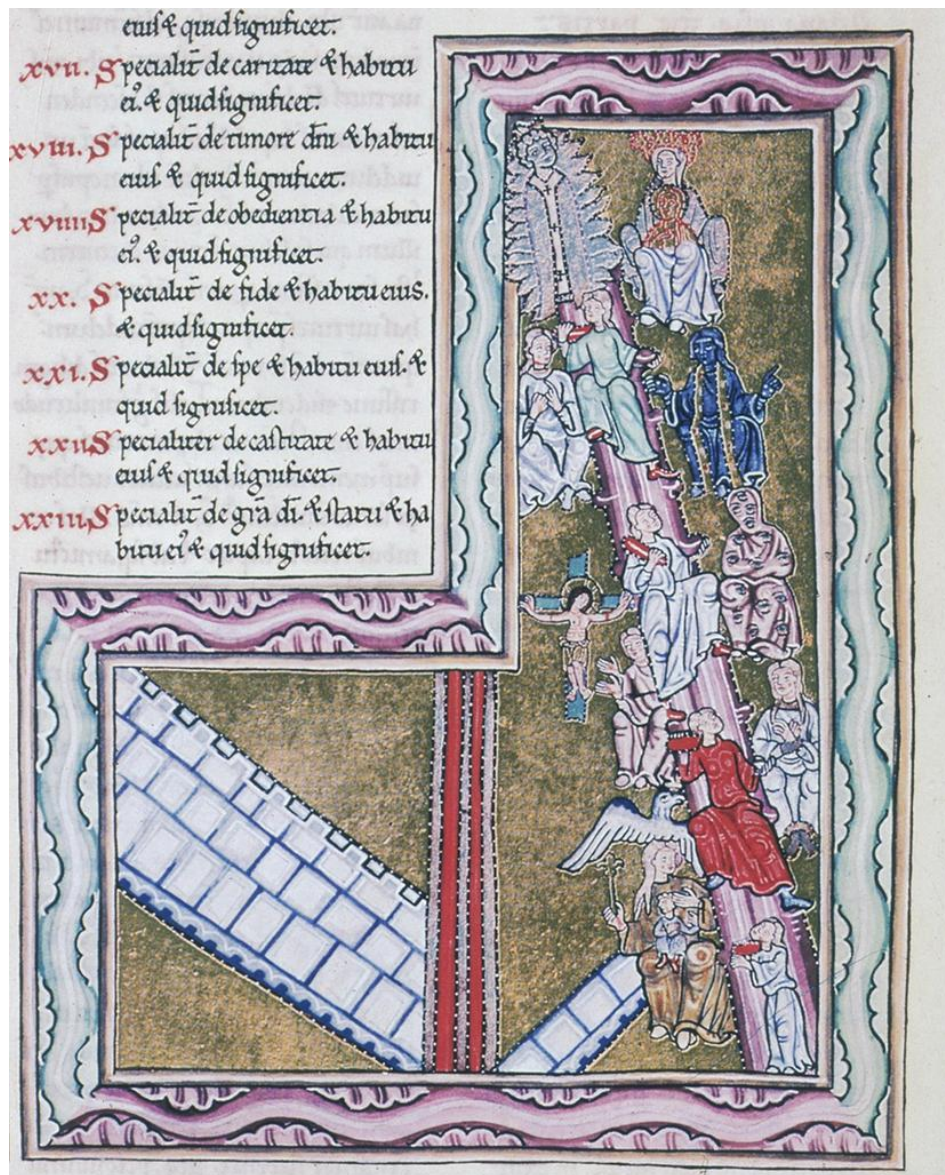 eius & quid significet.
xvii. Specialit̄ de caritate & habitu
ei᾿. & quid significet.
xviii. Specialit̄ de timore dn̄i & habitu
eius & quid significet.
xviiii Specialit̄ de obedientia & habitu
ei᾿. & quid significet.
xx. Specialit̄ de fide & habitu eius.
& quid significet.
xxi. Specialit̄ de spe & habitu eius. &
quid significet.
xxii Specialiter de castitate & habitu
eius & quid significet.
xxiii. Specialit̄ de gr̄a dī. & statu & ha
bitu ei᾿ & quid significet.